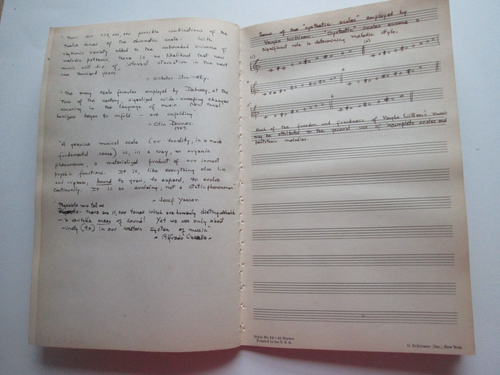 "There are 479,001,600 possible combinations of the
twelve tones of the chromatic scale. With
rhythmic variety added to the unbounded universe of
melodic patterns, there is no likelihood that new
music will die of internal starvation in the next
one thousand years."
- Nicolas Slonimsky.
"The many scale formulas employed by Debussy, at the
turn of the century, signalized wide-sweeping changes
occurring in the language of music. New tonal
horizons began to unfold - are unfolding
- Olin Downes
"A genuine musical scale (or tonality, in a most
fundamental sense) is, in a way, an organic
phenomenon, a materialized product of our inmost
psychic functions. It is, like everything else in
our organism, bound to grow, to expand, to evolve
continually. It is an evolving, not a static phenomenon
- Josef Yasser
"Physicists now tell us
there are 11,000 tones which are humanly distinguishable
- a veritable ocean of sound! Yet we use only about
ninety (90) in our western system of music"
- Alfredo Casella
Some of the "synthetic scales" employed by
Vaughn Williams. Synthetic scales assume a
significant role in determining melodic style.
Much of the freedom and freshness of Vaughn Williams' music
may be attributed to the general use of incomplete scales and
pentatonic melodies
Printed in the U.S.A.
G. Schirmer (Inc.), New York